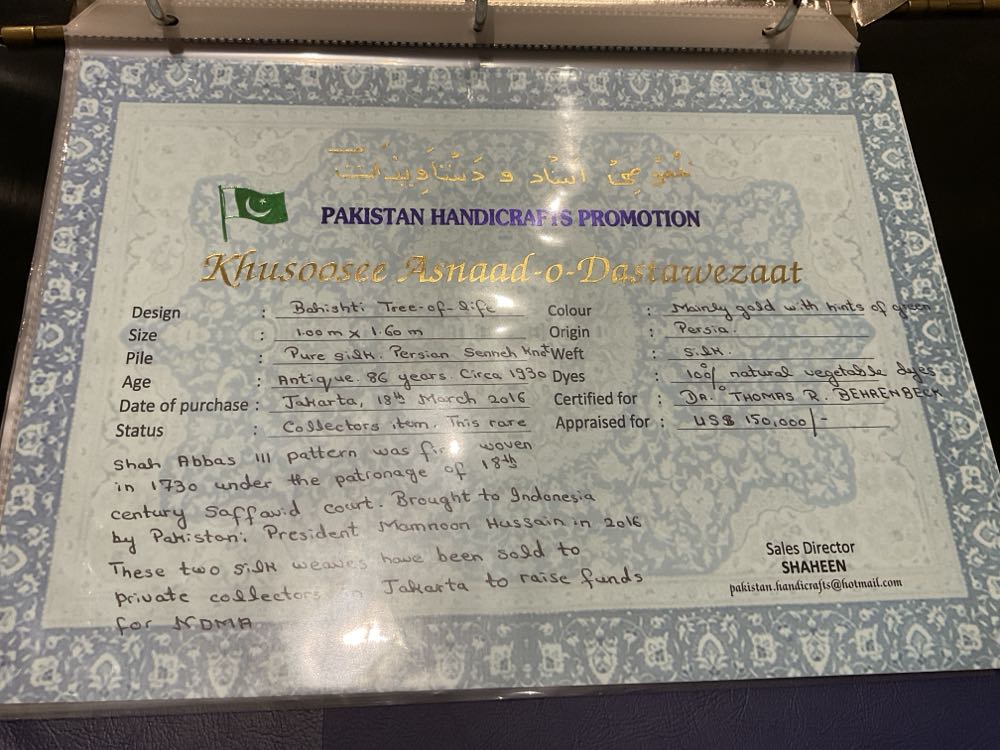 خصوصی اسناد و دستاویزات
PAKISTAN HANDICRAFTS PROMOTION
Khusoosee Asnaad-o-Dastawezaat
Design : Bahishti Tree-of-life
Colour : Mainly gold with hints of green
Size : 1.00 m x 1.60 m
Origin : Persia.
Pile : Pure silk. Persian Senneh Knot
Weft : Silk.
Age : Antique. 86 years. Circa 1930
Dyes : 100% natural vegetable dyes
Date of purchase : Jakarta, 18th March 2016
Certified for : DR. THOMAS R. BEHRENBECK
Status : Collectors item. This rare
Appraised for : US$ 150,000/-
Shah Abbas III pattern was first woven
in 1730 under the patronage of 18th
century Saffavid court. Brought to Indonesia
by Pakistani President Mamnoon Hussain in 2016
These two silk weaves have been sold to
private collectors in Jakarta to raise funds
for NDMA
Sales Director
SHAHEEN
pakistan.handicrafts@hotmail.com